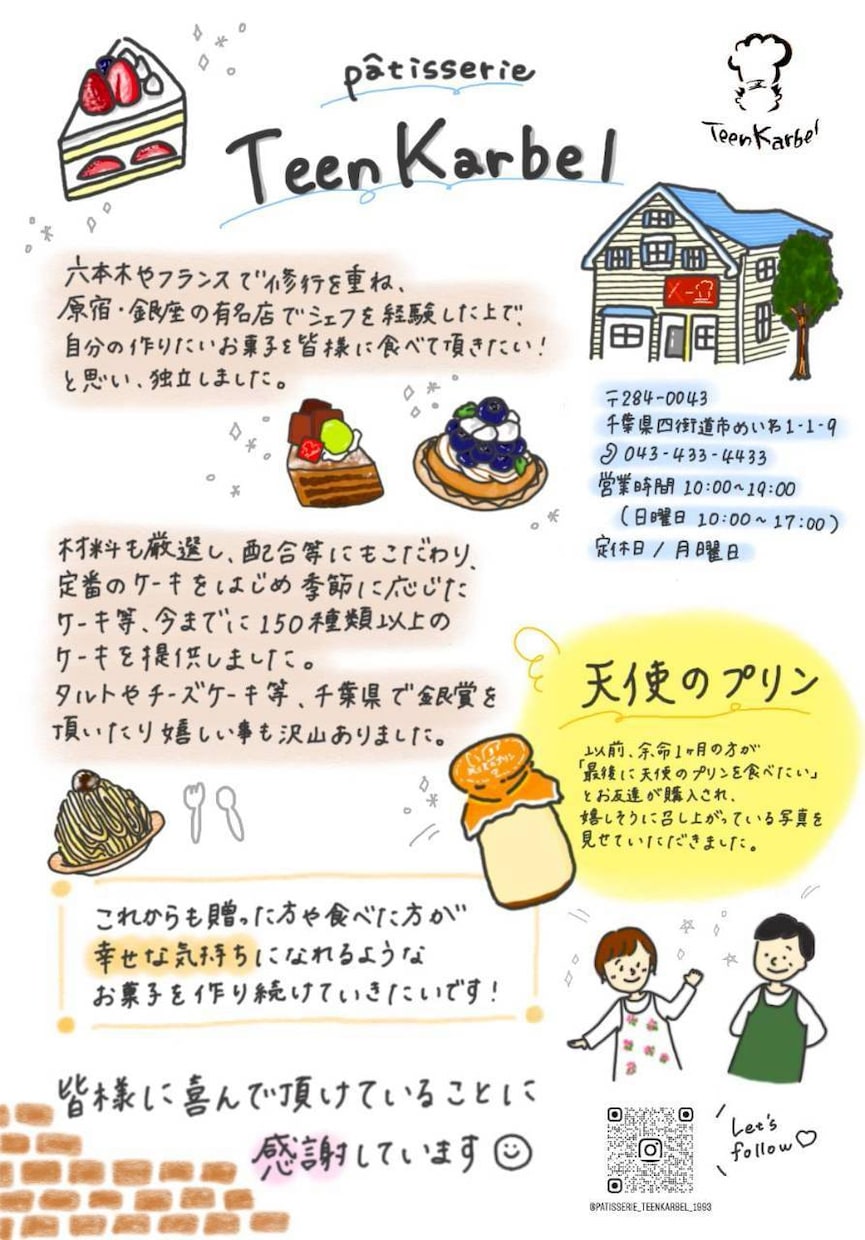 pâtisserie
Teen Karbel
Teen Karbel
六本木やフランスで修行を重ね、
原宿・銀座の有名店でシェフを経験した上で、
自分の作りたいお菓子を皆様に食べて頂きたい!
と思い、独立しました。
〒284-0043
千葉県四街道市めいわ1-1-9
043-433-4433
営業時間 10:00~19:00
(日曜日 10:00~17:00)
定休日/月曜日
材料も厳選し、配合等にもこだわり、
定番のケーキをはじめ季節に応じた
ケーキ等、今までに150種類以上の
ケーキを提供しました。
タルトやチーズケーキ等、千葉県で金賞を
頂いたり嬉しい事も沢山ありました。
天使のプリン
以前、余命1ヶ月の方が
「最後に天使のプリンを食べたい」
とお友達が購入され、
嬉しそうに召し上がっている写真を
見せていただきました。
これからも贈った方や食べた方が
幸せな気持ちになれるような
お菓子を作り続けていきたいです!
皆様に喜んで頂けていることに
感謝しています
Let's
follow
@PATISSERIE_TEENKARBEL_1993